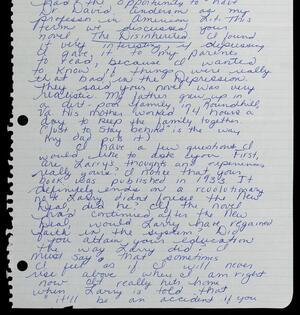 had the opportunity to have
Dr. David Anderson as my
professor in American Lit. This
term we discussed your
novel The Disinherited. I found
it very interesting & depressing
I gave it to my parents
to read, because I wanted
to know if things were really
that bad in the Depression.
They said your novel was very
realistic. My father grew up in
a dirt-poor family in Roundhill,
Va. His mother worked 14 hours a
day to keep the family together
(just to stay behind is the way
my dad puts it)
I have a few questions I
would like to ask you. First,
are Larry's thoughts and experiences
really yours? I note that your
book was published in 1933. It
definitely ends on a revolutionary
note. Larry didn't use the New
Deal, did he? If the novel
had continued after the New
Deal would Larry have regained
faith in the system? Did
you attain your education
the way Larry did? I
must say that sometimes
I feel as if I will never
rise above where I am right
now. It really hits home
when Larry is told that
it'll be an accident if you